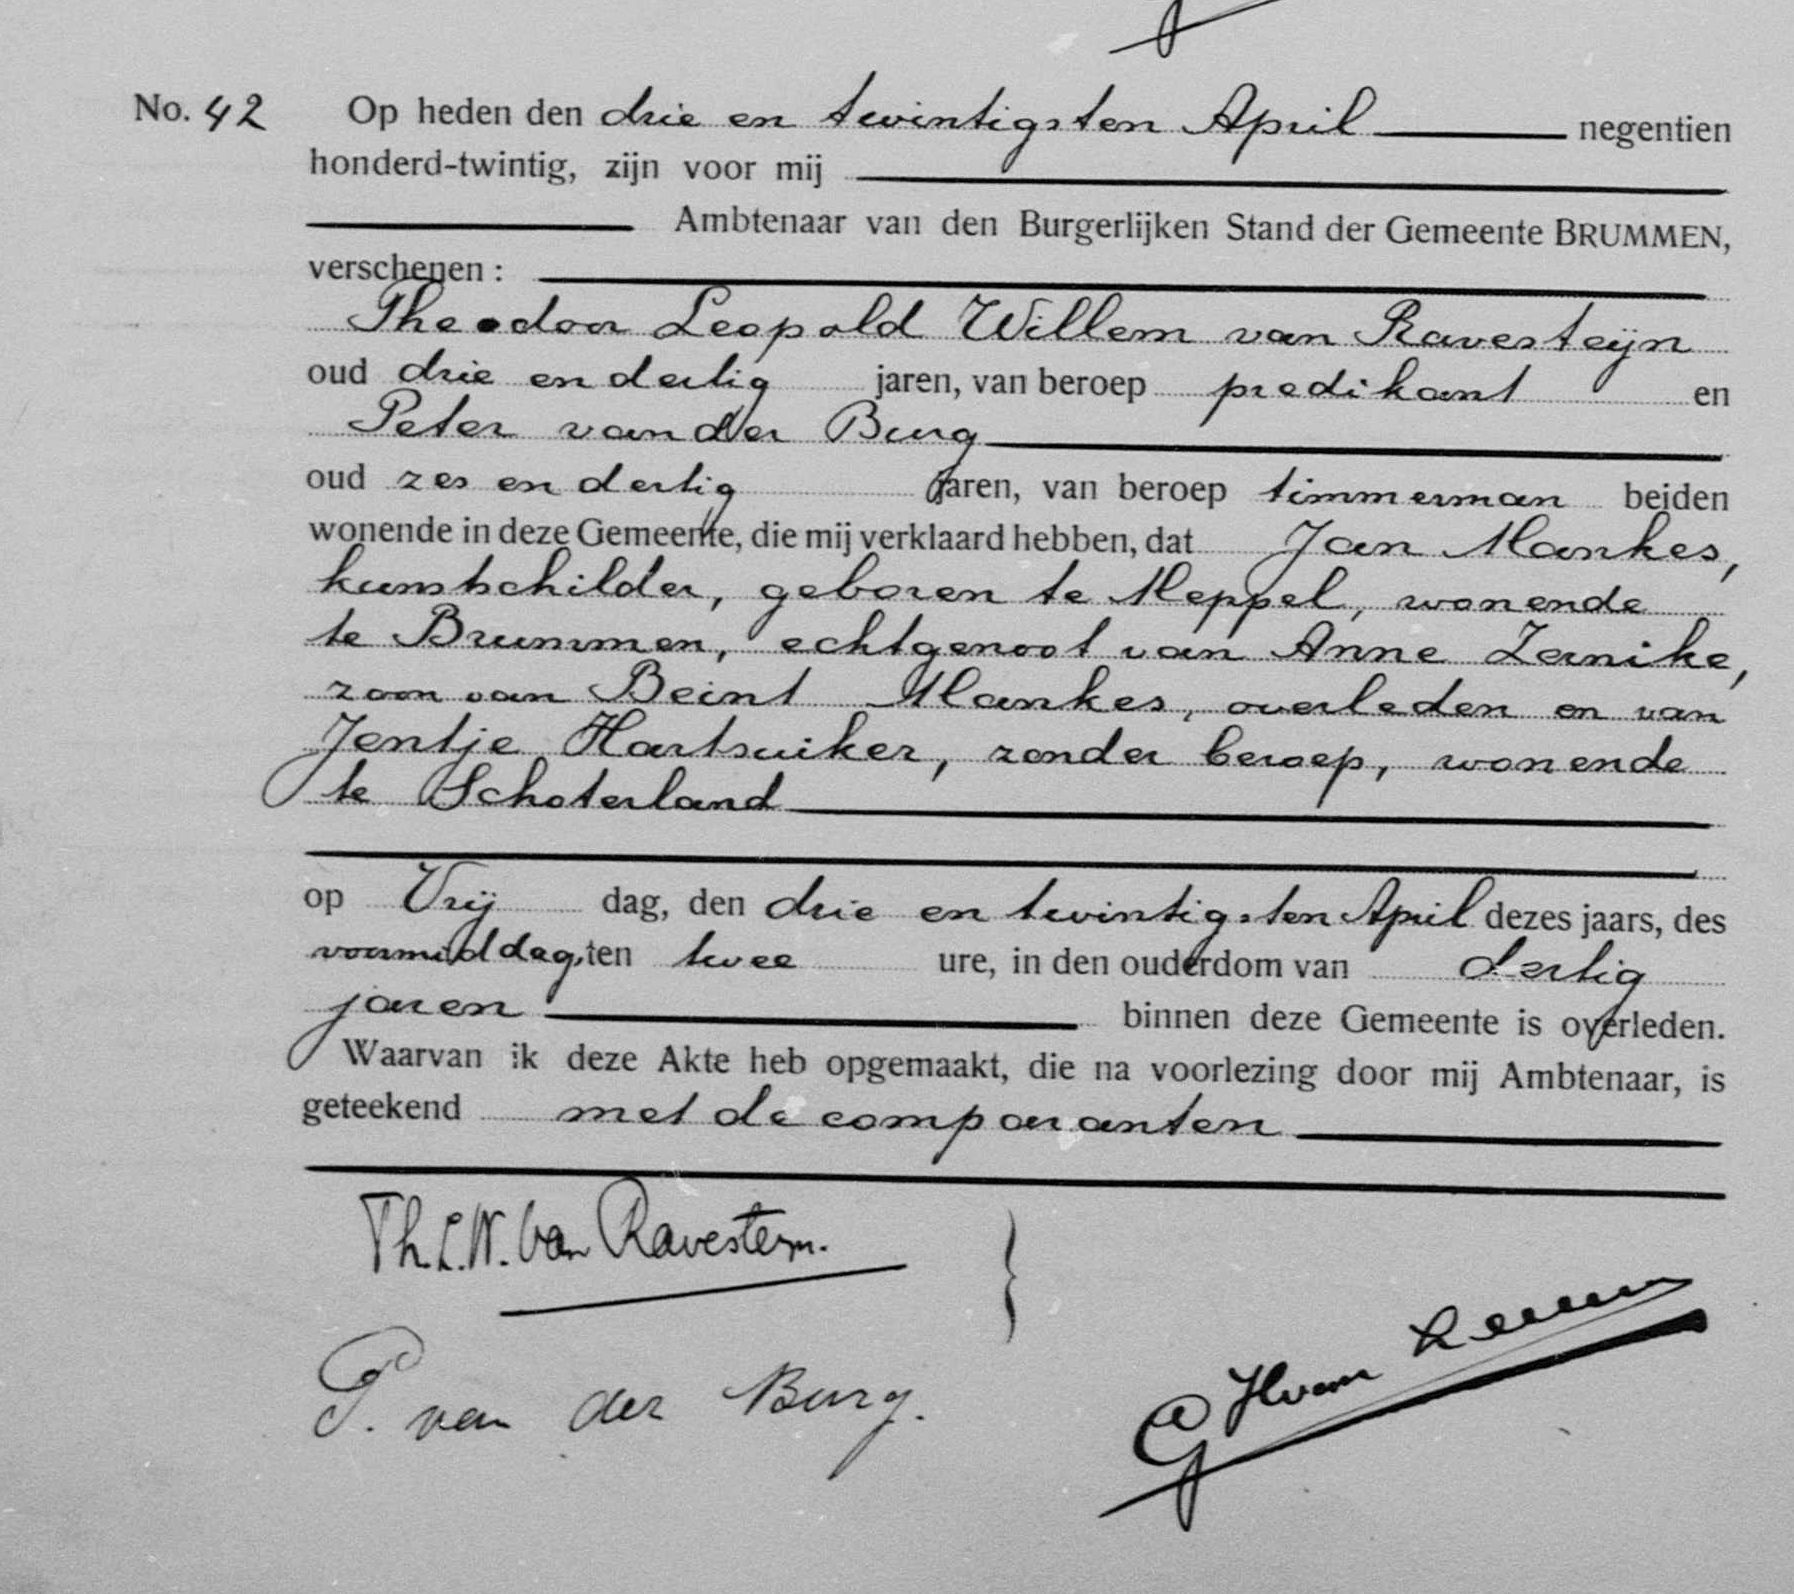 No. 42 Op heden den drie en twintigsten April negentien
honderd-twintig, zijn voor mij
Ambtenaar van den Burgerlijken Stand der Gemeente BRUMMEN,
verschenen :
Theodoor Leopold Willem van Ravesteijn
oud drie en dertig jaren, van beroep predikant en
Peter van der Burg
oud zes en dertig jaren, van beroep timmerman beiden
wonende in deze Gemeente, die mij verklaard hebben, dat Jan Mankes,
kunstschilder, geboren te Meppel, wonende
te Brummen, echtgenoot van Anne Zernike,
zoon van Beint Mankes, overleden en van
Jentje Hartsuiker, zonder beroep, wonende
te Schoterland
op Vrij dag, den drie en twintigsten April dezes jaars, des
voormiddags ten twee ure, in den ouderdom van dertig
jaren binnen deze Gemeente is overleden.
Waarvan ik deze Akte heb opgemaakt, die na voorlezing door mij Ambtenaar, is
geteekend met de comparanten
Th. L. W. van Ravesteijn.
P. van der Burg.